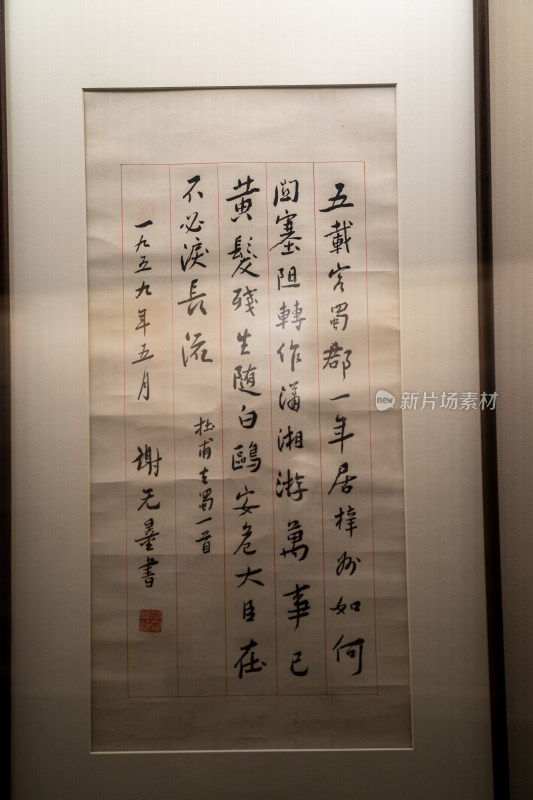 五載客蜀郡一年居梓州如何
關塞阻轉作瀟湘游萬事已
黃髮殘生随白鷗安危大臣在
不必淚長流
杜甫去蜀一首
一九五九年五月
謝无量書
new
新片场素材